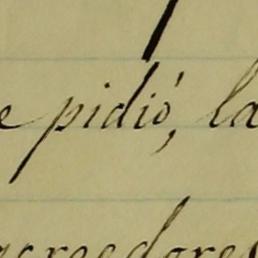 e pidió, la
acreedores